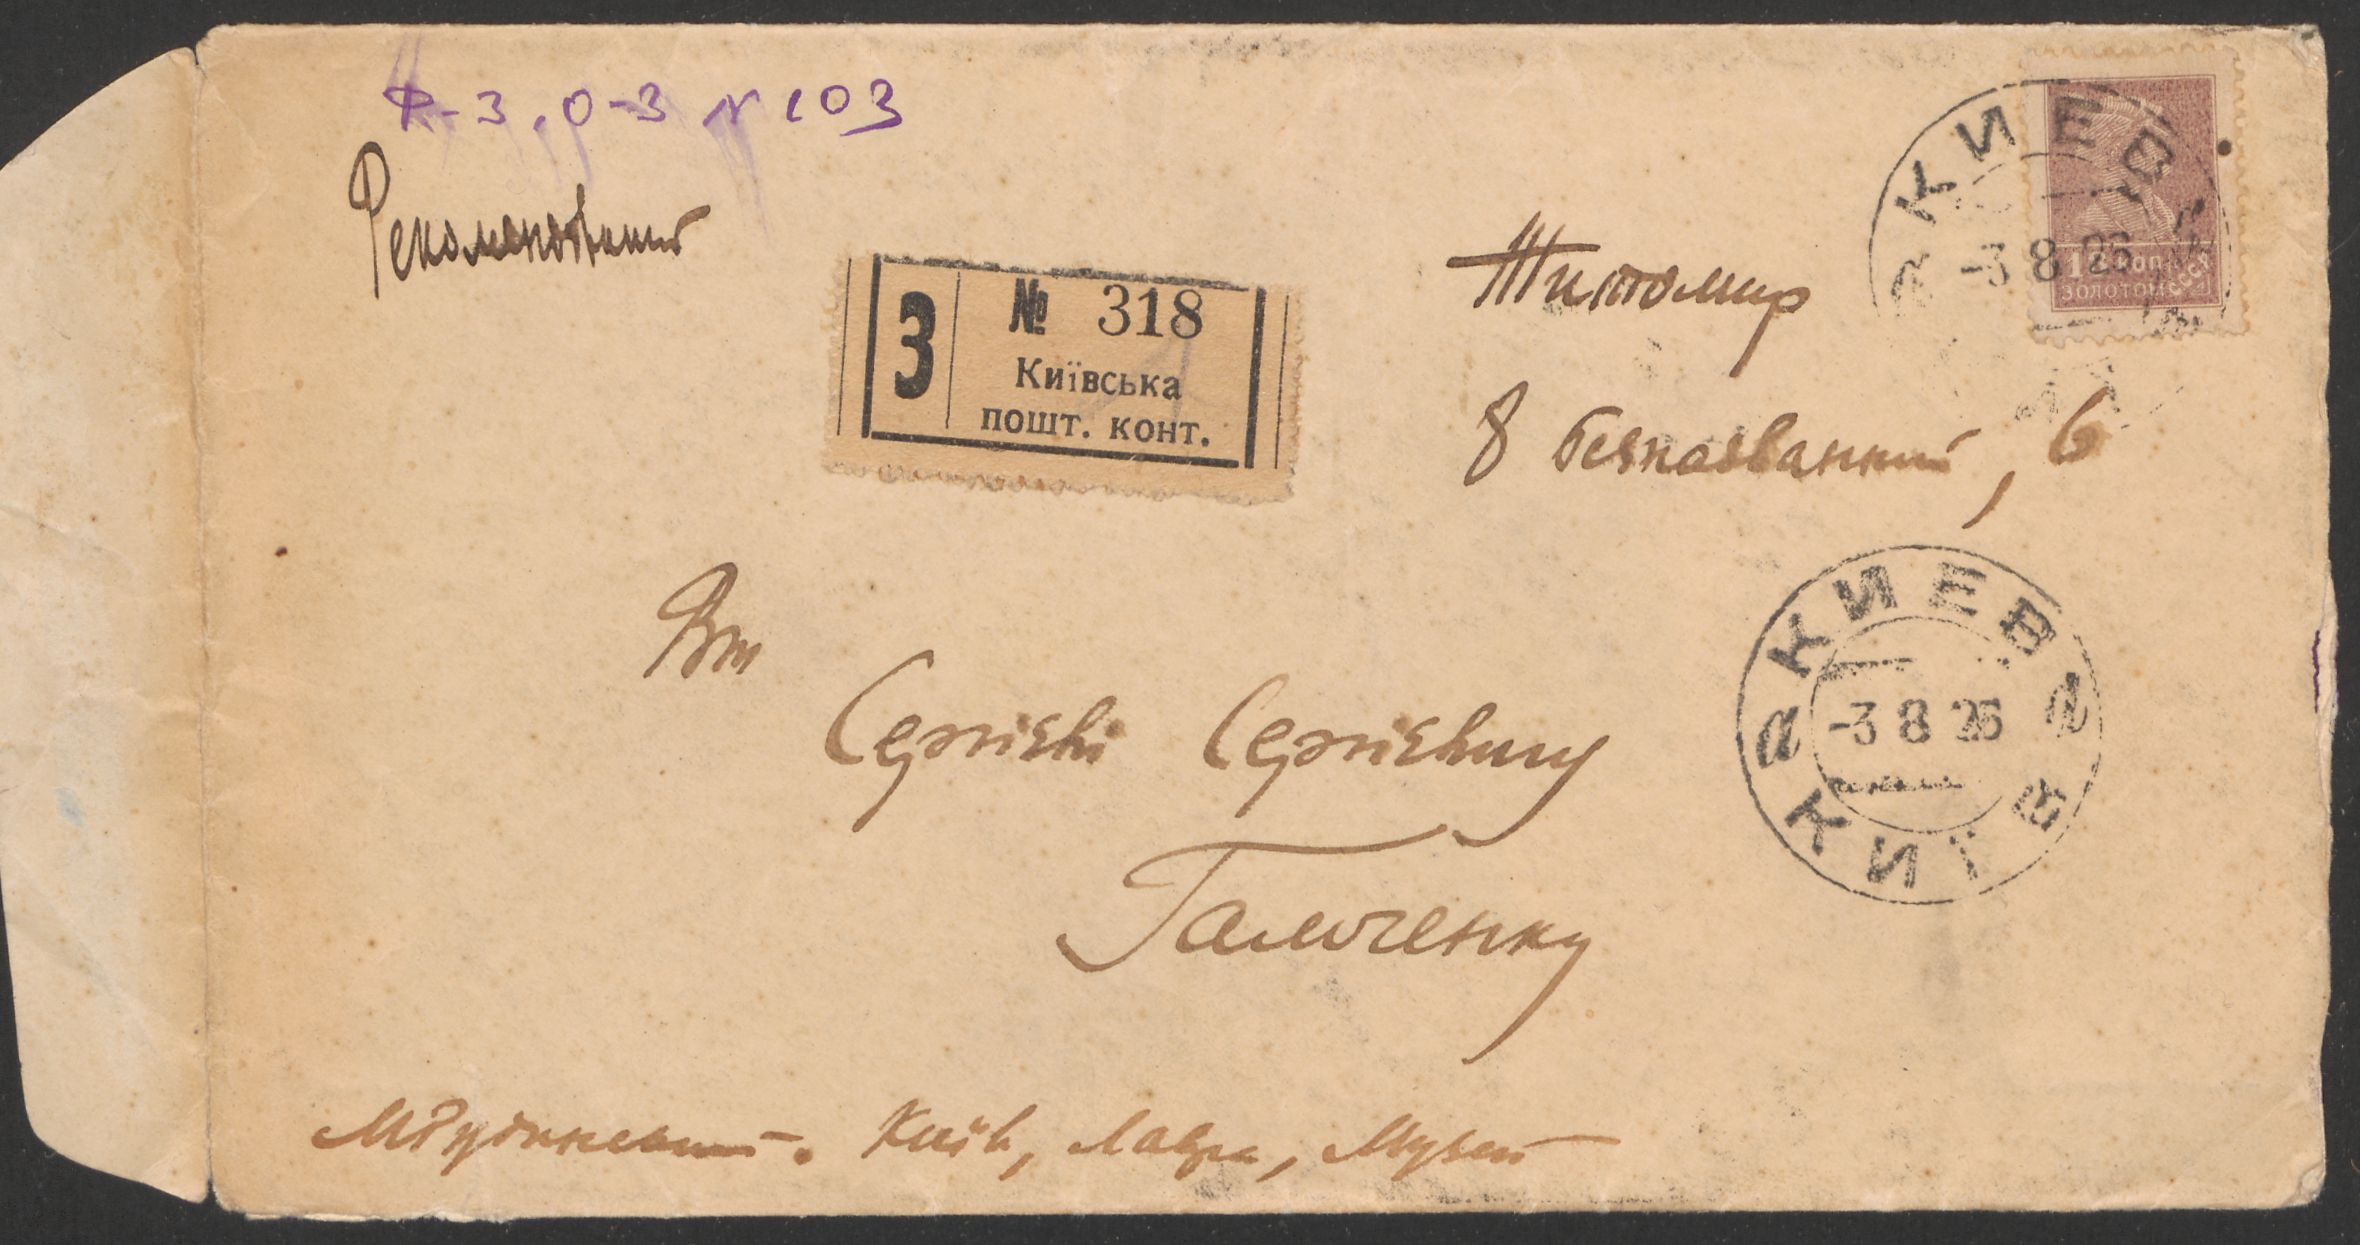 Ф-3, О-3 N 103
Рекомендований
3
№ 318
Київська
пошт. конт.
Житомир
8 Безназванний, 6
КИЕВ
-3 8 26
КОП
ЗОЛОТОМ
СССР
Вп
Сергієві Сергієвичу
Гамченку
КИЕВ
а -3 8 26 а
КИЇВ
МРудинський. Київ, Лавра, Музей